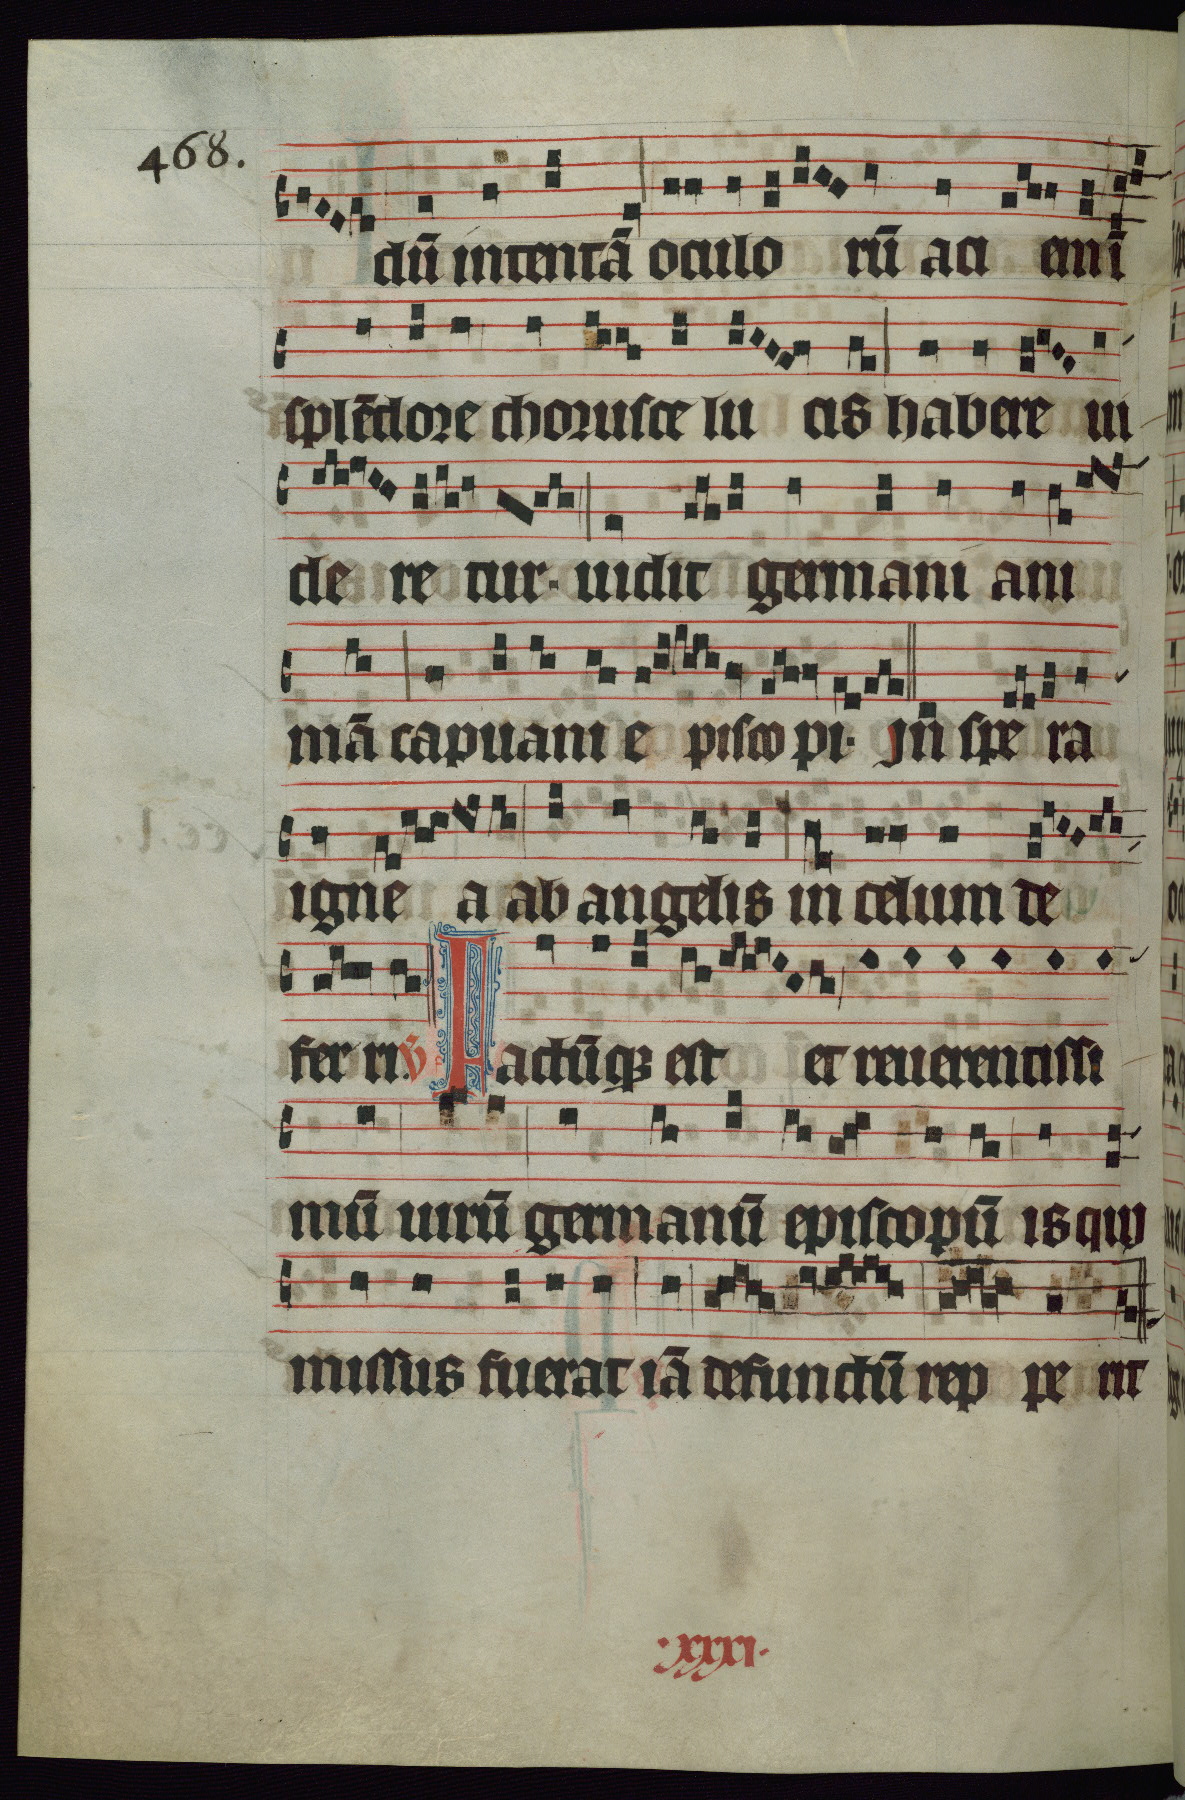 468.
dū intentā oculo rū aci em ī
splēdore choruſce lu cis habere ui
de re tur. uidit germani ani
mā capuani e piſco pi. Jn ſpe ra
igne a ab angelis in celum de
fer ri. V̄ Factūqꝫ eſt et reuerentiſſi
mū uirū germanū epiſcopū is qui
miſſus fuerat iā defunctū rep pe rit
.xxxi.